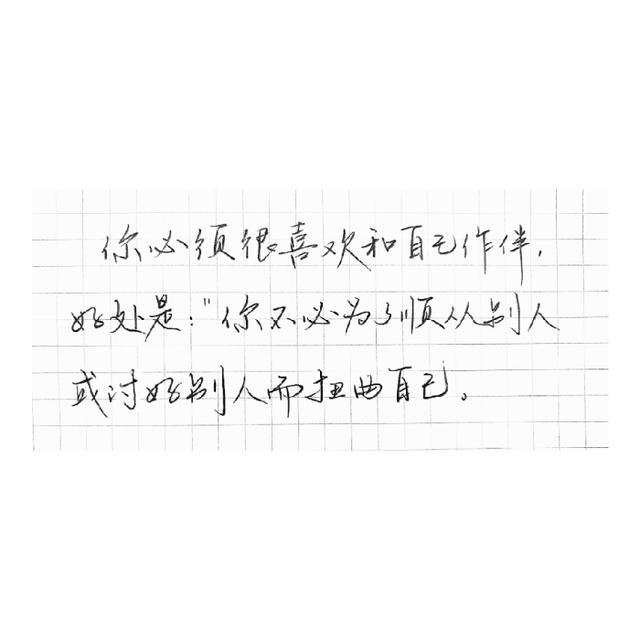 你必须很喜欢和自己作伴，
好处是："你不必为了顺从别人
或讨好别人而扭曲自己。